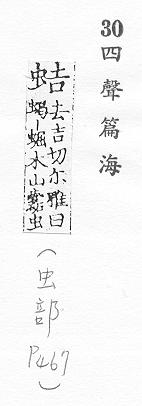 30四聲篇海
蛣
去吉切尔雅曰
蝎｜𧌑木山蠹虫
（虫部 P467）